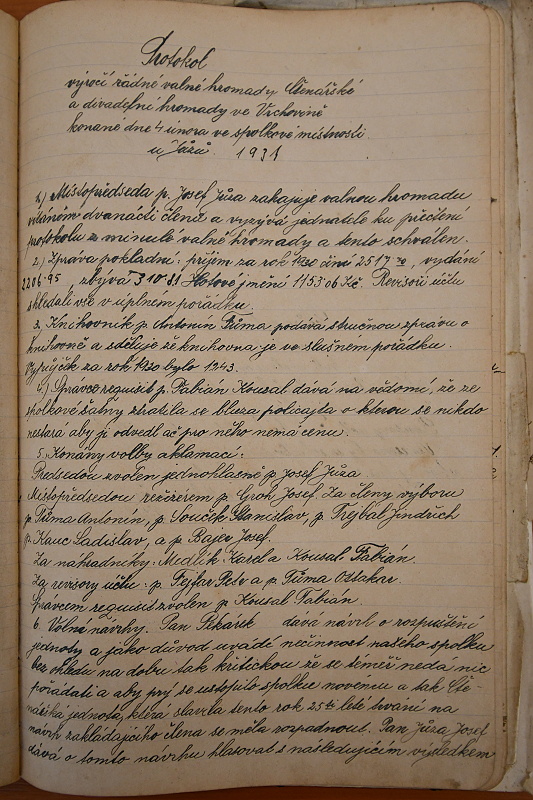 Protokol
výročí řádné valné hromady Čtenářské
a divadelní hromady ve Vrchovině
konané dne 4 února ve spolkové místnosti
u Jůzů 1931
1.) Místopředseda p. Josef Jůza zahajuje valnou hromadu
vítáním dvanácti členů a vyzývá jednatele ku přečtení
protokolu z minulé valné hromady a tento schválen.
2.) Zpráva pokladní: příjim za rok 1930 činí 2517 70, vydání
2206·95, zbývá 310·81 Hotové jmění 1153·06 Kč. Revisoři účtu
shledali vše v úplném pořádku.
3.) Knihovník p. Antonín Tůma podává stručnou zprávu o
knihovně a sděluje že knihovna je ve slušném pořádku.
Vypůjček za rok 1930 bylo 1243.
4.) Správce requisit p. Fabián Kousal dává na vědomí, že ze
spolkové šatny ztratila se bluza policajta o kterou se nikdo
nestará aby ji odvedl ač pro něho nemá cenu.
5. Konány volby aklamací:
Předsedou zvolen jednohlasně p. Josef Jůza
Místopředsedou režisérem p. Groh Josef. Za členy výboru
p. Tůma Antonín, p. Souček Stanislav, p. Trejbal Jindřich
p. Kauc Ladislav, a p. Bajer Josef.
Za náhradníky: Medlík Karel a Kousal Fabián.
Za revisory účtu: p. Fejfar Petr a p. Tůma Ottakar.
Správcem requisit zvolen p. Kousal Fabián.
6. Volné návrhy. Pan dává návrh o rozpuštění
jednoty a jako důvod uvádí nečinnost našeho spolku
bez ohledu na dobu tak kritickou že se téměř nedá nic
pořádati a aby prý se ustoupilo spolku novému a tak Čte-
nářská jednota, která slavila tento rok 25ti leté trvání na
návrh zakládajícího člena se měla rozpadnout. Pan Jůza Josef
dává o tomto návrhu hlasovat s následujícím výsledkem